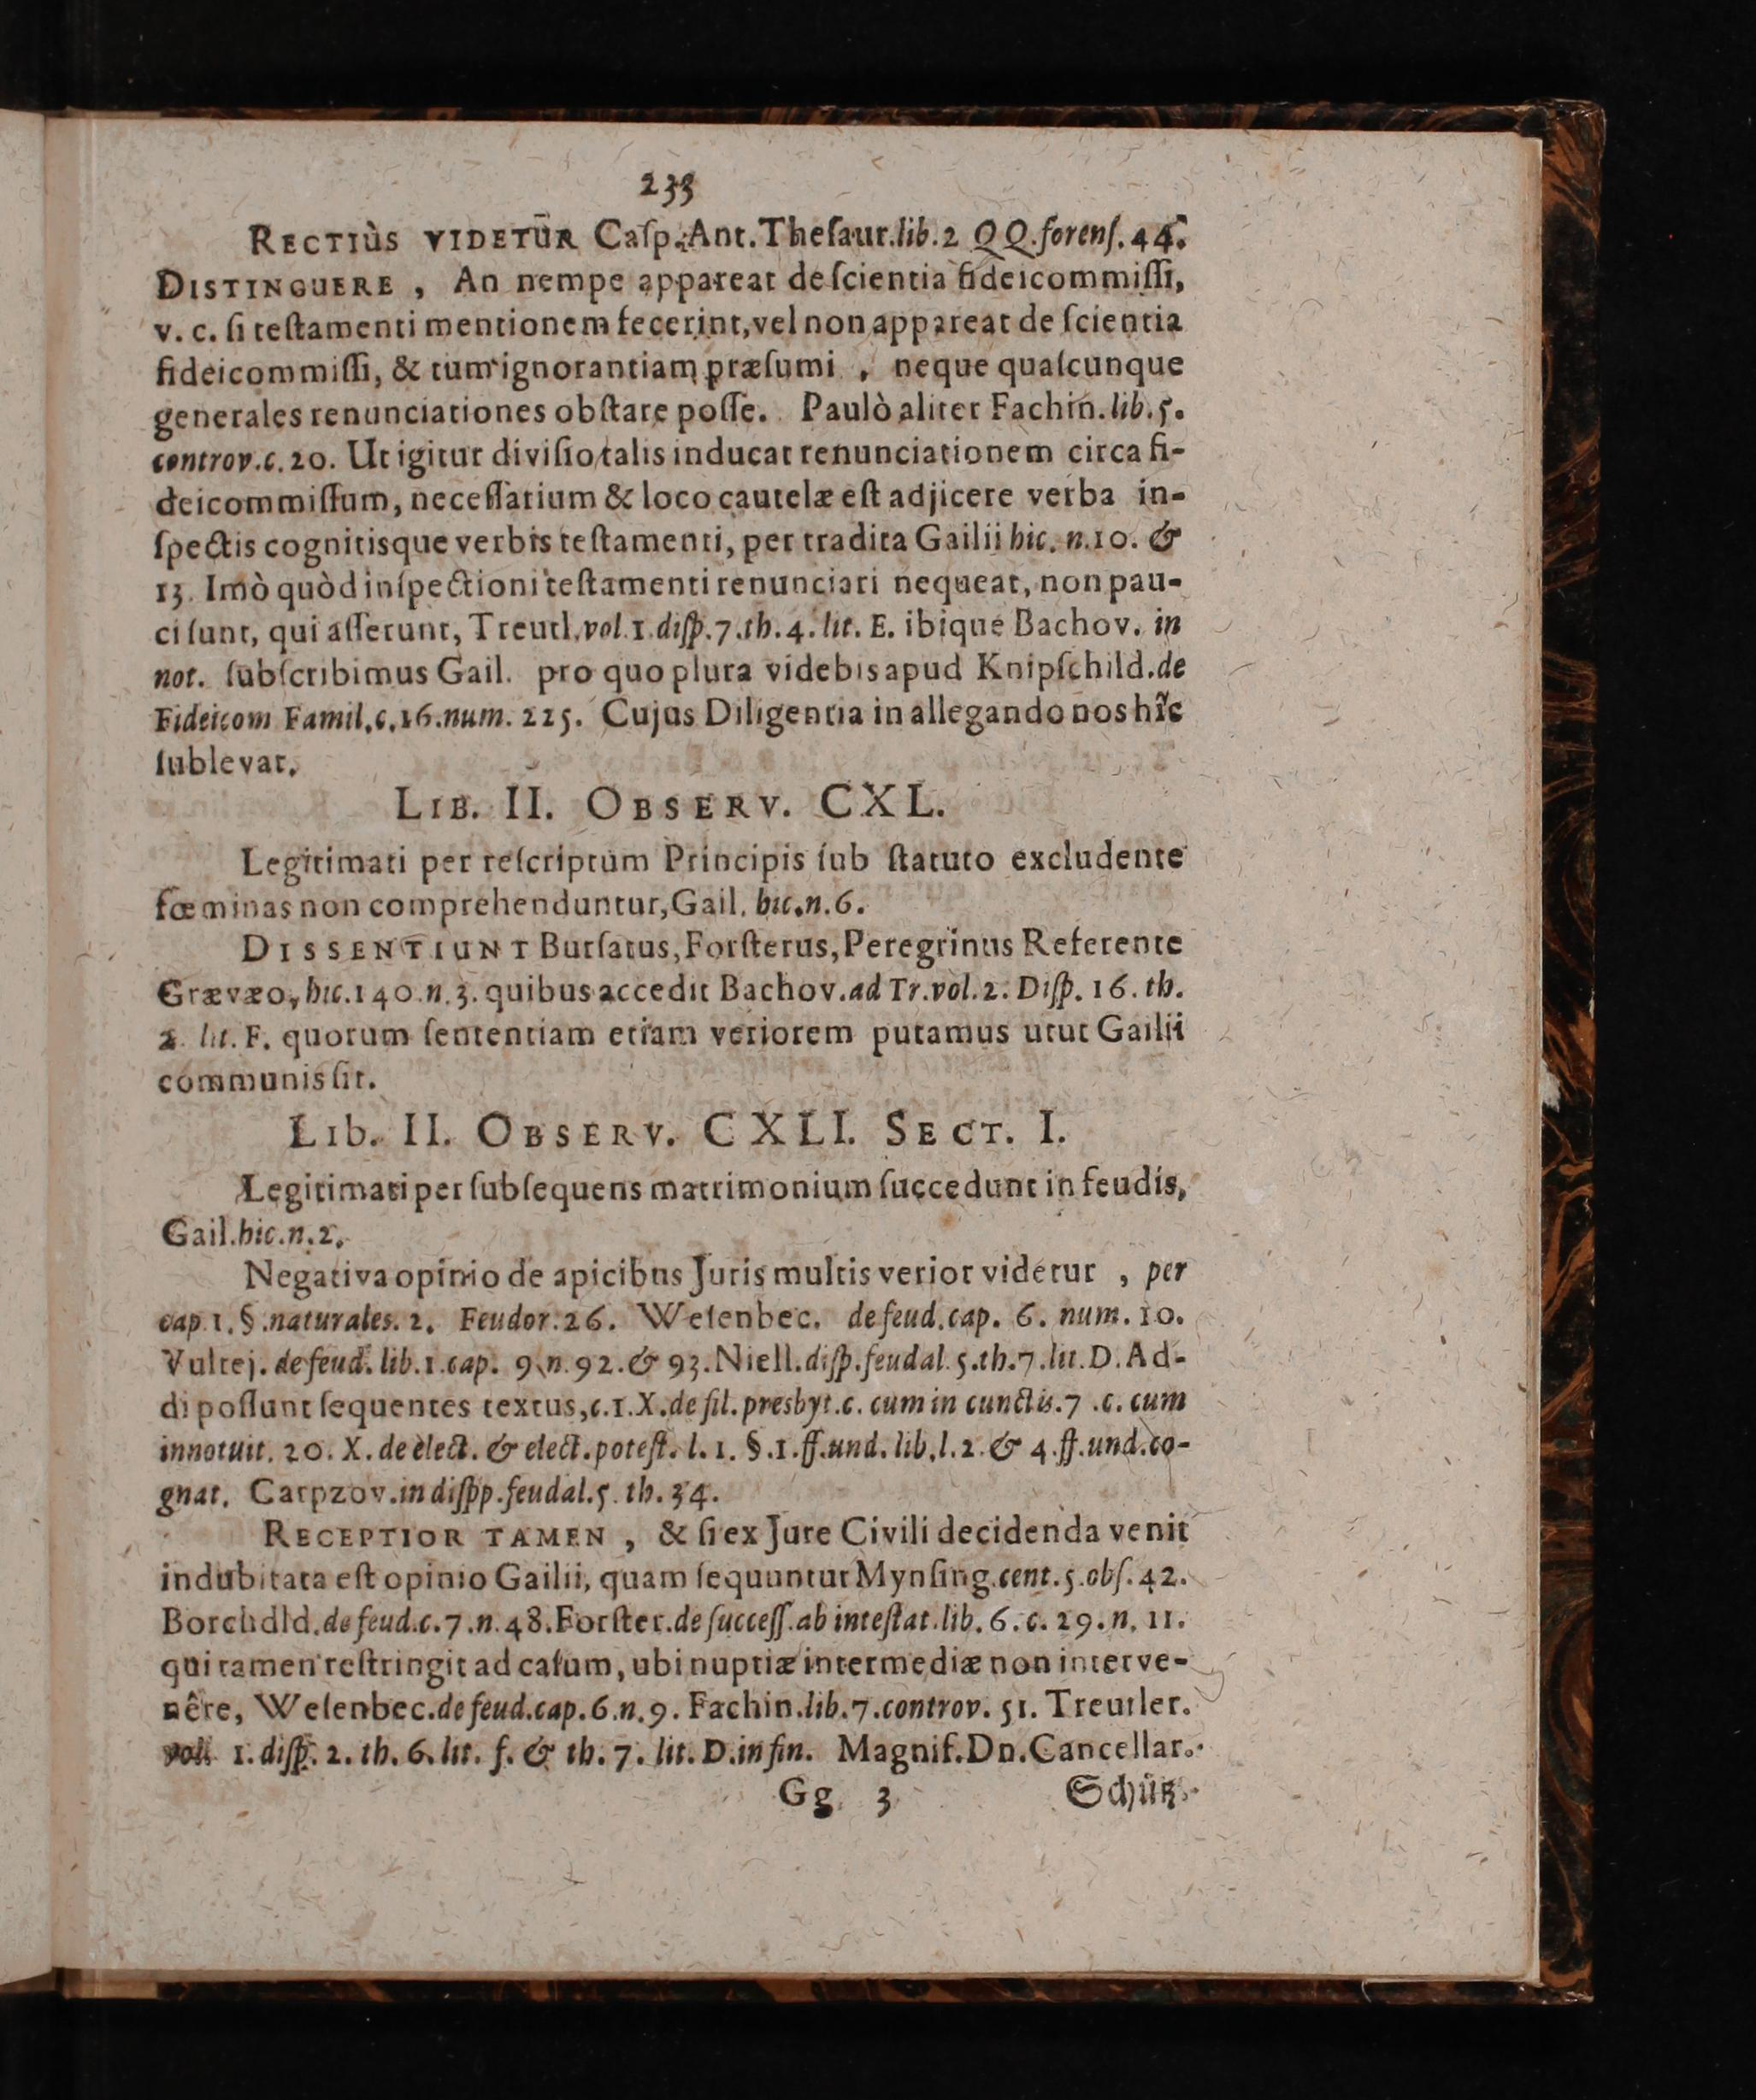 233
RECTIùS VIDETUR Caſp. Ant. Theſaur. lib. 2 QQ. forenſ. 44.
DISTINGUERE, An nempe appareat de ſcientia fideicommiſſi,
v. c. ſi teſtamenti mentionem fecerint, vel non appareat de ſcientia
fideicommiſſi, & tum ignorantiam præſumi, neque quaſcunque
generales renunciationes obſtare poſſe. Paulò aliter Fachin. lib. 5.
controv. c. 20. Ut igitur diviſio talis inducat renunciationem circa fi-
deicommiſſum, neceſſarium & loco cautelæ eſt adjicere verba in-
ſpectis cognitisque verbis teſtamenti, per tradita Gailii hic. n. 10. &
13. Imò quòd inſpectioni teſtamenti renunciari nequeat, non pau-
ci ſunt, qui aſſerunt, Treutl. vol. 1. diſp. 7. th. 4. lit. E. ibique Bachov. in
not. ſubſcribimus Gail. pro quo plura videbis apud Knipſchild. de
Fideicom Famil. c. 16. num. 225. Cujus Diligentia in allegando nos hîc
ſublevat.
LIB. II. OBSERV. CXL.
Legitimati per reſcriptum Principis ſub ſtatuto excludente
fœminas non comprehenduntur, Gail. hic. n. 6.
DISSENTIUNT Burſatus, Forſterus, Peregrinus Referente
Grævæo, hic. 140. n. 3. quibus accedit Bachov. ad Tr. vol. 2. Diſp. 16. th.
2. lit. F. quorum ſententiam etiam veriorem putamus utut Gailii
communis ſit.
Lib. II. OBSERV. CXLI. SECT. I.
Legitimati per ſubſequens matrimonium ſuccedunt in feudis,
Gail. hic. n. 2.
Negativa opinio de apicibus Juris multis verior videtur, per
cap. 1. §. naturales. 2. Feudor. 26. Weſenbec. de feud. cap. 6. num. 10.
Vultej. de feud. lib. 1. cap. 9. n. 92. & 93. Niell. diſp. feudal. 5. th. 7. lit. D. Ad-
di poſſunt ſequentes textus, c. 1. X. de fil. presbyt. c. cum in cunctis. 7. c. cum
innotuit. 20. X. de elect. & elect. poteſt. l. 1. §. 1. ff. und. lib. l. 2. & 4. ff. und. co-
gnat. Carpzov. in diſpp. feudal. 5. th. 34.
RECEPTIOR TAMEN, & ſi ex Jure Civili decidenda venit
indubitata eſt opinio Gailii, quam ſequuntur Mynſing. cent. 5. obſ. 42.
Borchold. de feud. c. 7. n. 48. Forſter. de ſucceſſ. ab inteſtat. lib. 6. c. 29. n. 11.
qui tamen reſtringit ad caſum, ubi nuptiæ intermediæ non interve-
nêre, Weſenbec. de feud. cap. 6. n. 9. Fachin. lib. 7. controv. 51. Treutler.
vol. 1. diſp. 2. th. 6. lit. f. & th. 7. lit. D. in fin. Magnif. Dn. Cancellar.
Gg 3 Schütz.